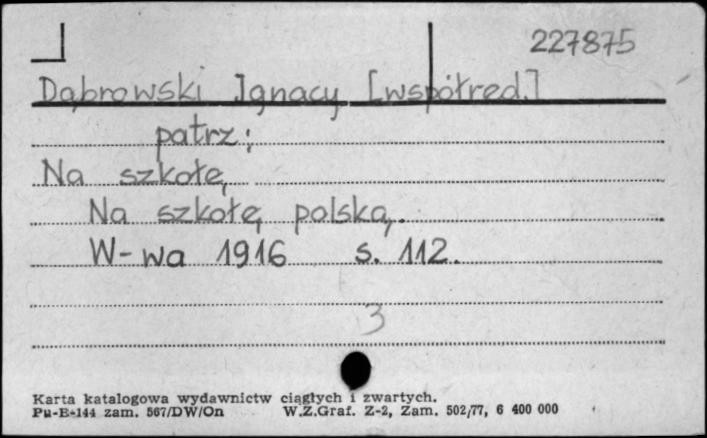 227875
Dąbrowski Ignacy [współred.]
patrz:
Na szkołę
Na szkołę polską.
W-wa 1916 s. 112.
3
Karta katalogowa wydawnictw ciągłych i zwartych.
Pu-B-144 zam. 567/DW/On W.Z.Graf. Z-2, Zam. 502/77, 6 400 000